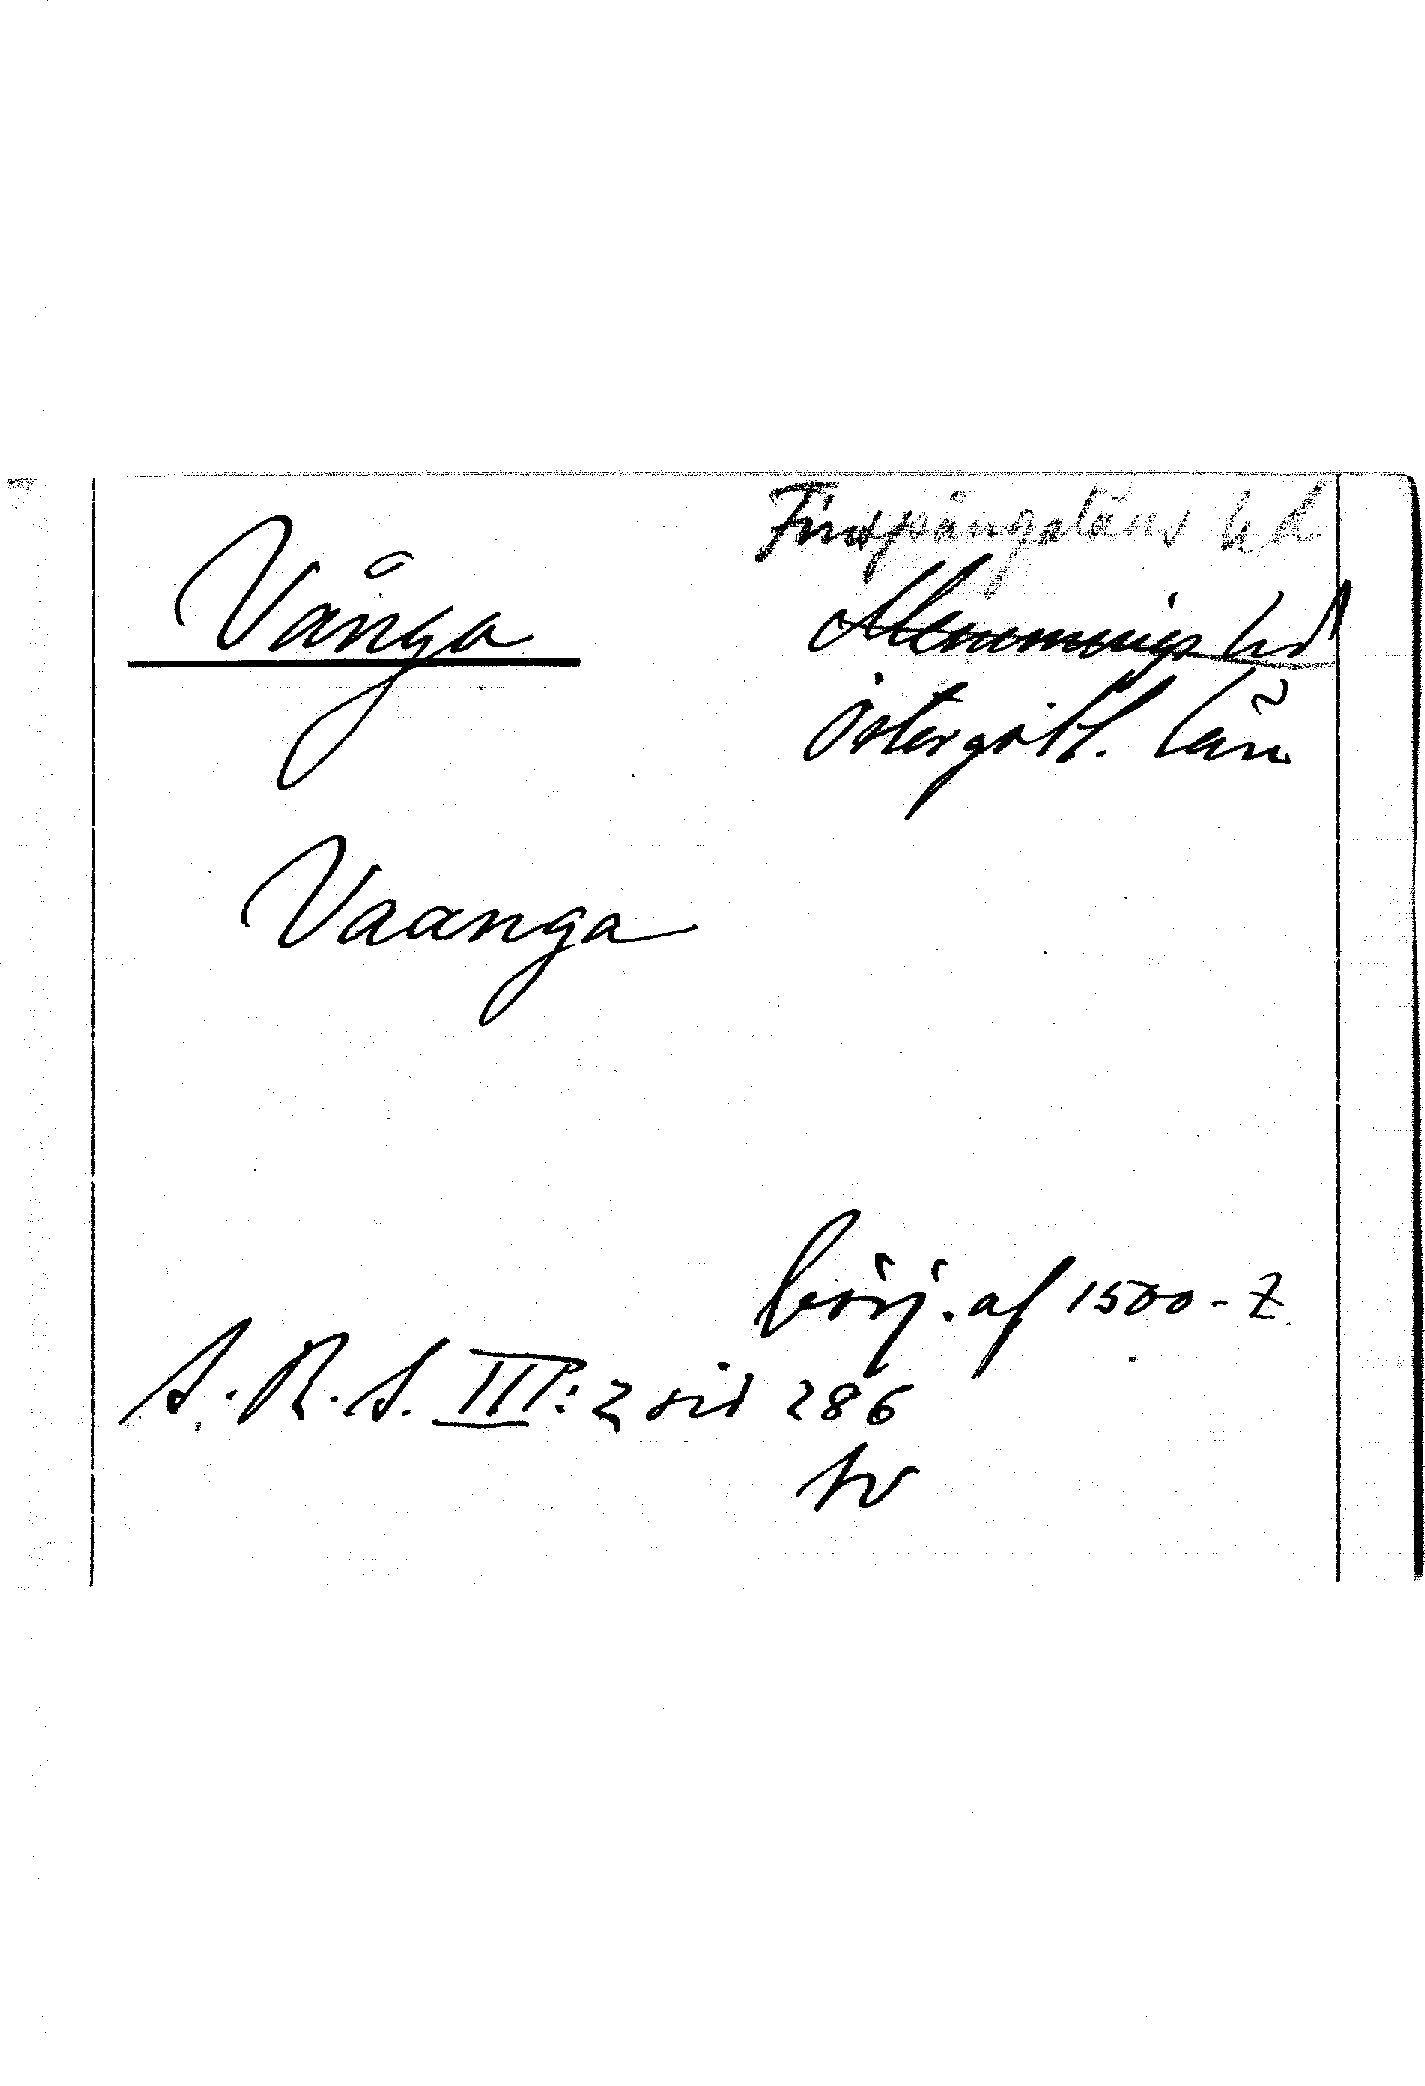 Finspångaläns hd
Vånga
Memmings hd
Östergötl. län
Vaanga
börj. af 1500-t
S.R.S. III:2 sid 286